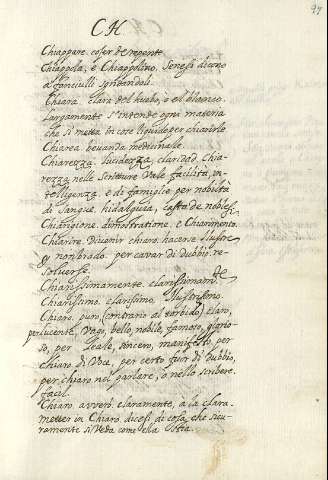 97
CH
Chiappare. cojer de repente.
Chiappola, e Chiappolino. Senesi dicono
a fanciulli sgridendoli.
Chiara. clara del huebo, o el blanco.
largamente s'intende ogni materia
che si mette in cose liquide per chiarirle
Chiarea. bevanda medicinale.
Chiarezza. lucidezza, claridad. Chia-
rezza nelle scritture Vale facilità, in-
telligenza, e di famiglie per nobiltà
di Sangue, hidalguia, casta de nobles,
Chiarigione. dimostratione, e Chiarimento.
Chiarire. Divenir chiaro. hacerse Ilustre
y nombrado. per cavar di Dubbio. re-
solverse.
Chiarissimamente. clarissimamte
Chiarissimo. clarissimo, Ilustrissimo.
Chiaro. puro (contrario al torbido) claro,
per lucente, Vago, bello, nobile, famoso, glorio-
so, per leale, sincero, manifesto, per
chiaro di Voce, per certo fuor di Dubbio,
per chiaro nel parlare, o nello scribere.
facil.
Chiaro. avverb. claramente, a la clara.
metter in Chiaro, dicesi di cosa, che sicu-
ramente si Veda come ella Stia.